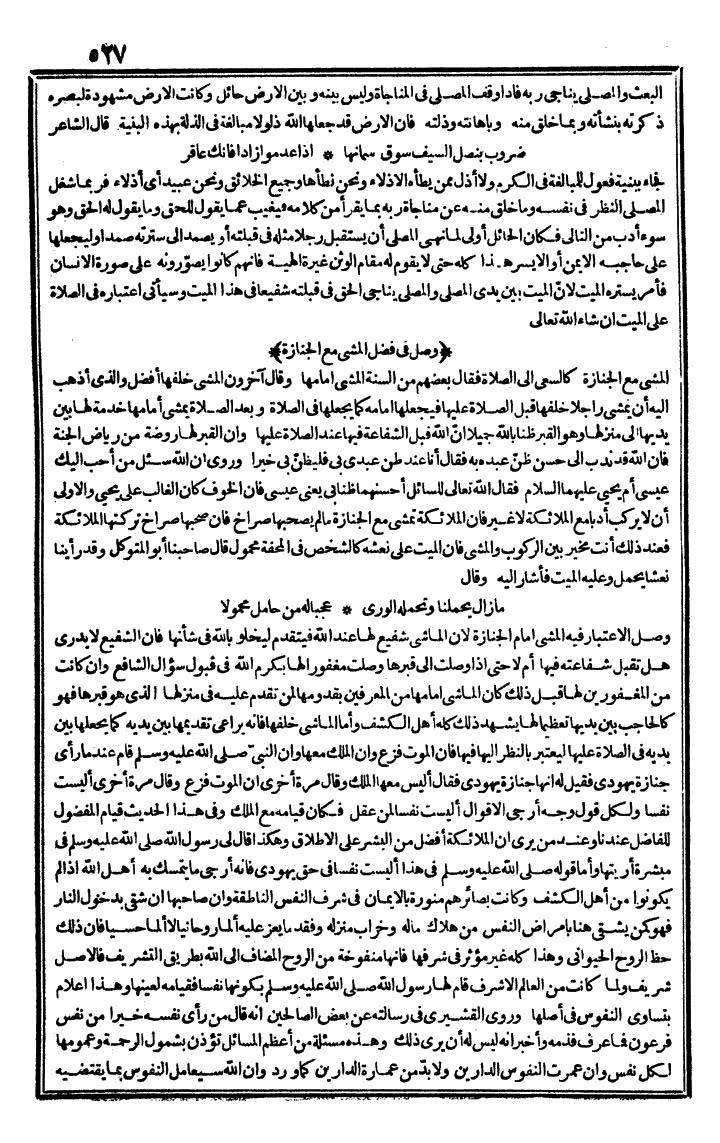 ٥٢٧
البعث والمصلى يناجى ربه فاذا وقف المصلى فى المناجاة وليس بينه وبين الارض حائل وكانت الارض مشهودة لبصره
ذكرته بنشأته وبما خلق منه وباهانته وذلته فان الارض قد جعلها الله ذلولا مبالغة فى الذلة بهذه البنية قال الشاعر
ضروب بنصل السيف سوق سمانها * اذا عدموا زادا فانك عاقر
فجاء ببنية فعول للمبالغة فى الكرم ولا أذل ممن يطأه الاذلاء ونحن نطأها وجميع الخلائق ونحن عبيد أى أذلاء فربما شغل
المصلى النظر فى نفسه وما خلق منه عن مناجاة ربه بما يقرأ من كلامه فيغيب عما يقول للحق وما يقول له الحق وهو
سوء أدب من التالى فكان الحائل أولى لما نهى المصلى أن يستقبل رجلا مثله فى قبلته أو يصمد الى سترته صمدا وليجعلها
على حاجبه الايمن أو الايسر هذا كله حتى لا يقوم له مقام الوثن غيرة الهية فانهم كانوا يصورونه على صورة الانسان
فأمر بستره الميت لان الميت بين يدى المصلى والمصلى يناجى الحق فى قبلته شفيعا فى هذا الميت وسيأتى اعتباره فى الصلاة
على الميت ان شاء الله تعالى
﴿وصل فى فضل المشى مع الجنازة﴾
المشى مع الجنازة كالسعى الى الصلاة فقال بعضهم من السنة المشى امامها وقال آخرون المشى خلفها أفضل والذى أذهب
اليه أن يمشى راجلا خلفها قبل الصلاة عليها فيجعلها امامه كما يجعلها فى الصلاة وبعد الصلاة يمشى أمامها خدمة لها بين
يديها الى منزلها وهو القبر ظنا بالله جميلا ان الله قبل الشفاعة فيها عند الصلاة عليها وان القبر لها روضة من رياض الجنة
فان الله قد ندب الى حسن ظن عبده به فقال أنا عند ظن عبدى بى فليظن بى خيرا وروى ان الله سئل من أحب اليك
عيسى أم يحيى عليهما السلام فقال الله تعالى للسائل أحسنهما ظنا بى يعنى عيسى فان الخوف كان الغالب على يحيى والاولى
أن لا يركب أدبا مع الملائكة لا غير فان الملائكة تمشى مع الجنازة مالم يصحبها صراخ فان صحبها صراخ تركتها الملائكة
فعند ذلك أنت مخير بين الركوب والمشى فان الميت على نعشه كالشخص فى المحفة محمول قال صاحبنا أبو المتوكل وقد رأينا
نعشا يحمل وعليه الميت فأشار اليه وقال
مازال يحملنا وتحمله الورى * عجبا له من حامل محمولا
وصل الاعتبار فيه المشى امام الجنازة لان الماشى شفيع لها عند الله فيتقدم ليخلو بالله فى شأنها فان الشفيع لا يدرى
هل تقبل شفاعته فيها أم لا حتى اذا وصلت الى قبرها وصلت مغفورا لها بكرم الله فى قبول سؤال الشافع وان كانت
من المغفورين لها قبل ذلك كان الماشى امامها من المعرفين بقدومها لمن تقدم عليه فى منزلها الذى هو قبرها فهو
كالحاجب بين يديها تعظيما لها يشهد ذلك كله أهل الكشف وأما الماشى خلفها فانه يراعى تقديمها بين يديه كما يجعلها بين
يديه فى الصلاة عليها ليعتبر بالنظر اليها فيها فان الموت فزع وان الملك معها وان النبى صلى الله عليه وسلم قام عندما رأى
جنازة يهودى فقيل له انها جنازة يهودى فقال أليس معها الملك وقال مرة أخرى ان الموت فزع وقال مرة أخرى أليست
نفسا ولكل قول وجه أرجى الاقوال أليست نفسا لمن عقل فكان قيامه مع الملك وفى هذا الحديث قيام المفضول
للفاضل عندنا وعند من يرى ان الملائكة أفضل من البشر على الاطلاق وهكذا قال لى رسول الله صلى الله عليه وسلم فى
مبشرة أريتها وأما قوله صلى الله عليه وسلم فى هذا أليست نفسا فى حق يهودى فانه أرجى ما يتمسك به أهل الله اذا لم
يكونوا من أهل الكشف وكانت بصائرهم منورة بالايمان فى شرف النفس الناطقة وان صاحبها ان شقى بدخول النار
فهو كمن يشقى هنا بامراض النفس من هلاك ماله وخراب منزله وفقد ما يعز عليه ألما روحانيا لا ألما حسيا فان ذلك
حظ الروح الحيوانى وهذا كله غير مؤثر فى شرفها فانها منفوخة من الروح المضاف الى الله بطريق التشريف فالاصل
شريف ولما كانت من العالم الاشرف قام لها رسول الله صلى الله عليه وسلم بكونها نفسا فقيامه لعينها وهذا اعلام
بتساوى النفوس فى أصلها وروى القشيرى فى رسالته عن بعض الصالحين انه قال من رأى نفسه خيرا من نفس
فرعون فما عرف فذمه وأخبر انه ليس له أن يرى ذلك وهذه مسئلة من أعظم المسائل تؤذن بشمول الرحمة وعمومها
لكل نفس وان عمرت النفوس الدارين ولا بد من عمارة الدارين كما ورد وان الله سيعامل النفوس بما يقتضيه